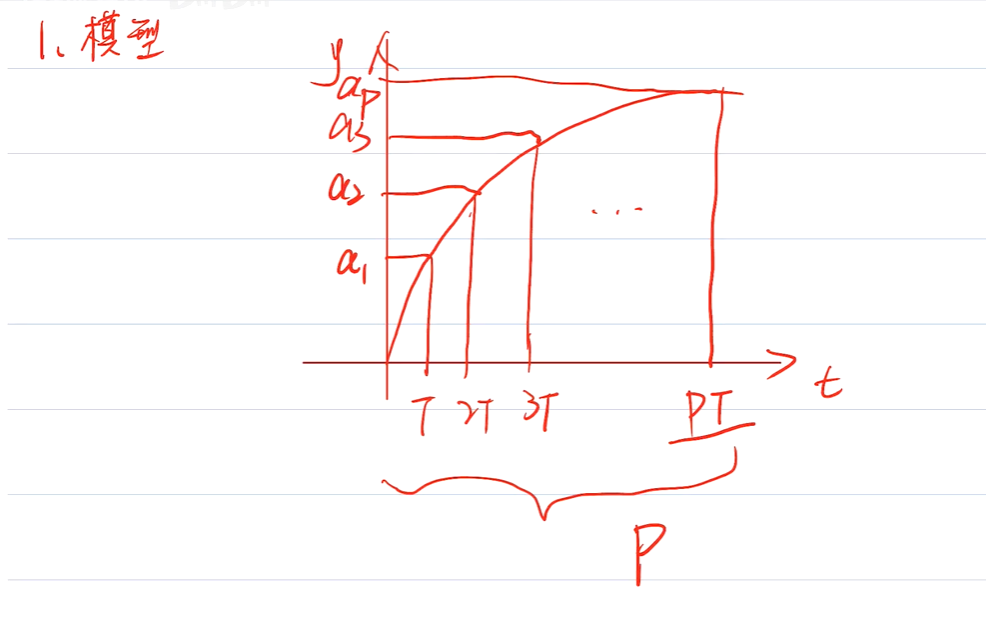 1、模型
y
ap
a3
a2
a1
...
T 2T 3T PT t
P